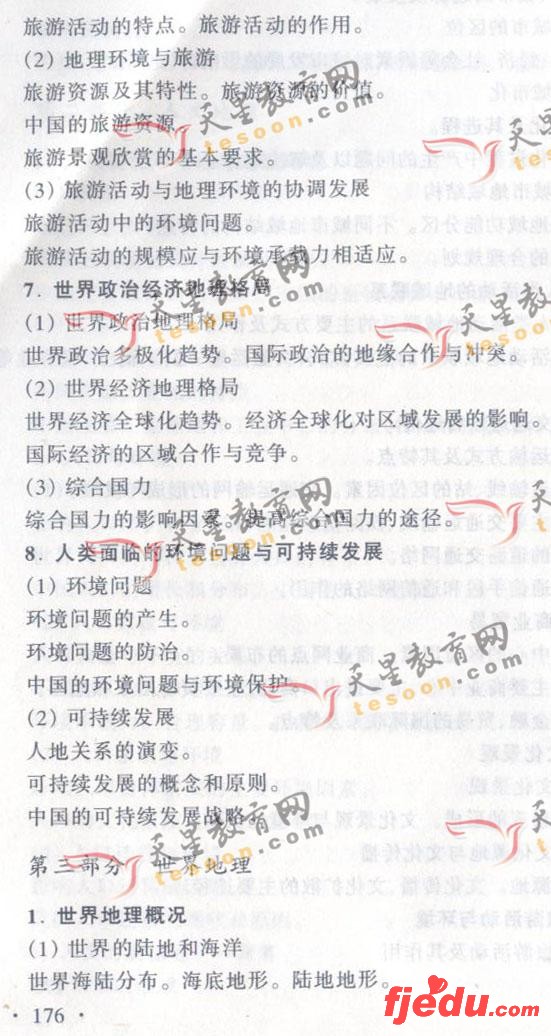 旅游活动的特点。旅游活动的作用。
(2) 地理环境与旅游
旅游资源及其特性。旅游资源的价值。
中国的旅游资源
旅游景观欣赏的基本要求。
(3) 旅游活动与地理环境的协调发展
旅游活动中的环境问题。
旅游活动的规模应与环境承载力相适应。
7. 世界政治经济地理格局
(1) 世界政治地理格局
世界政治多极化趋势。国际政治的地缘合作与冲突。
(2) 世界经济地理格局
世界经济全球化趋势。经济全球化对区域发展的影响。
国际经济的区域合作与竞争。
(3) 综合国力
综合国力的影响因素。提高综合国力的途径。
8. 人类面临的环境问题与可持续发展
(1) 环境问题
环境问题的产生。
环境问题的防治。
中国的环境问题与环境保护
(2) 可持续发展
人地关系的演变。
可持续发展的概念和原则。
中国的可持续发展战略。
第三部分 世界地理
1. 世界地理概况
(1) 世界的陆地和海洋
世界海陆分布。海底地形。陆地地形。
· 176 ·
天星教育网
tesoon.com
fjedu.com